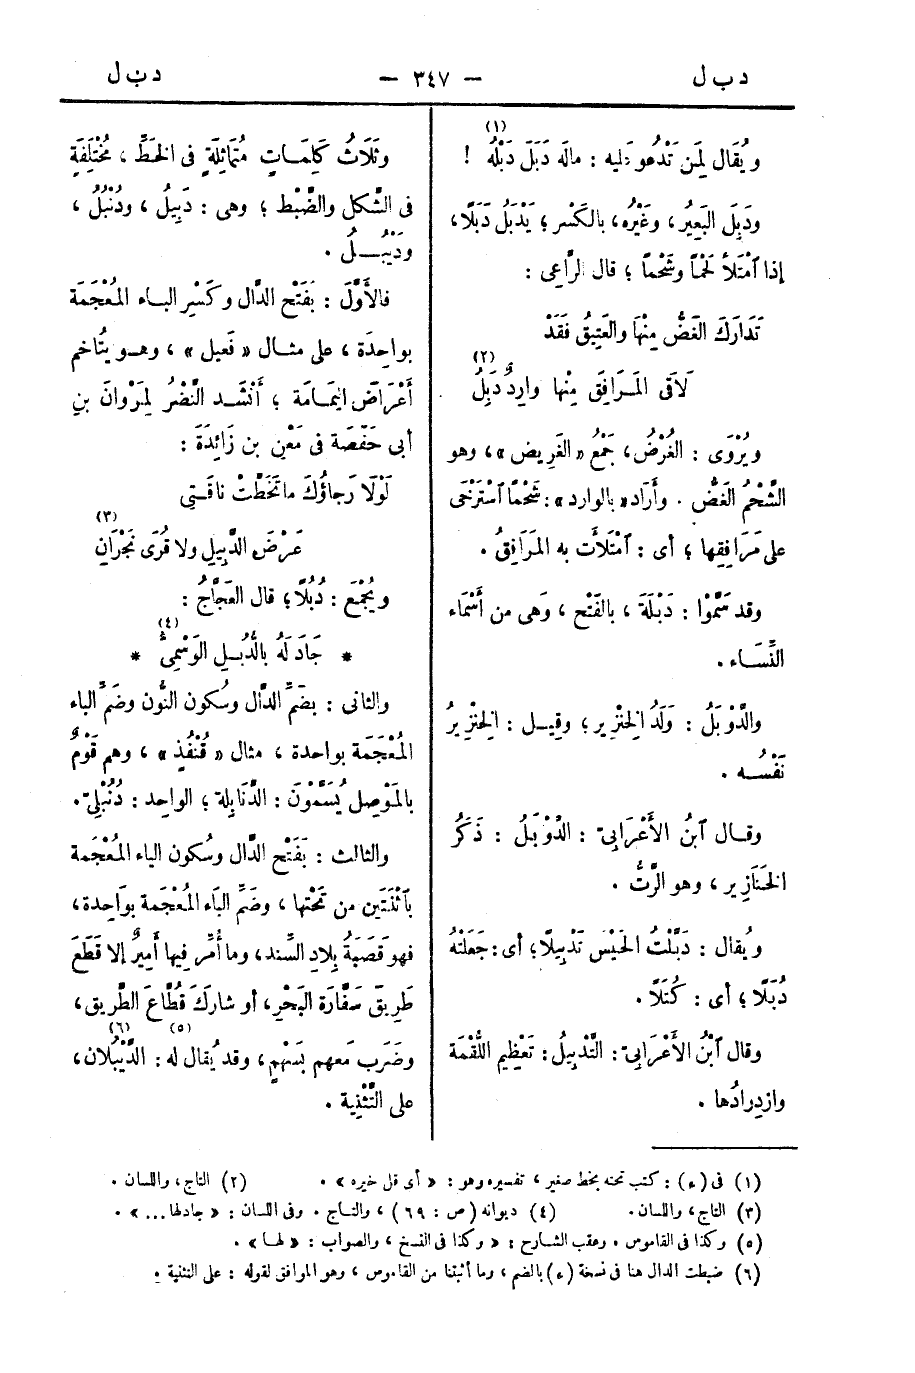 د ب ل
— ٣٤٧ —
د ب ل
ويُقَال لِمَن تَدْعُو عَليه : مالَه دَبَلَ دَبْلُه (١) !
ودَبِلَ البَعِيرُ ، وغَيْرُه ، بالكَسْر ؛ يَدْبَلُ دَبَلًا ،
إذا ٱمْتَلأ لَحْماً وشَحْماً ؛ قال الرَّاعِى :
تَدَارَكَ الغَضُّ مِنْهَا والعَتِيقُ فَقَدْ
لَاقَى المَرَافِقَ مِنْها وارِدٌ دَبِلُ (٢)
ويُرْوَى : الغُرْضُ ، جَمْعُ « الغَرِيض » ، وهو
الشَّحْمُ الغَضُّ . وأَرَادَ « بالوارد » : شَحْمًا ٱسْتَرْخَى
على مَرَافِقِها ؛ أى : ٱمْتَلَأَت به المَرَافِقُ .
وقد سَمَّوْا : دَبْلَةَ ، بالفَتْح ، وَهى من أَسْمَاء
النِّسَاء .
والدَّوْبَلُ : وَلَدُ الخِنْزِير ؛ وقِيل : الخِنْزِيرُ
نَفْسُه .
وقال ٱبنُ الأَعْرَابىّ : الدَّوْبَلُ : ذَكَرُ
الخَنَازِير ، وهو الرَّتُّ .
ويُقال : دَبَّلْتُ الحَيْسَ تَدْبِيلًا ؛ أى : جَعَلْتَهُ
دُبَلًا ؛ أى : كُتَلًا .
وقال ٱبْنُ الأَعْرَابىّ : التَّدْبِيلُ : تَعْظِيم اللُّقْمَة
وازدِرادُها .
وثَلَاثُ كَلِمَاتٍ مُتَمَاثِلَةٍ فى الخَطِّ ، مُخْتَلِفَةٍ
فى الشَّكل والضَّبْط ؛ وهى : دَبِيلُ ، ودُنْبُلُ ،
ودَيْبُلُ .
فالأَوَّلَ : بفَتْح الدَّال وكَسْرِ الباء المُعْجَمَة
بواحِدَة ، على مثال « فَعِيل » ، وهو يُتَاخم
أَعْرَاضَ اليَمَامَة ؛ أَنْشَد النَّضْرُ لمَرْوانَ بنِ
أبى حَفْصَة فى مَعْنِ بن زَائِدَةَ :
لَوْلَا رَجاؤُكَ ما تَخَطَّتْ ناقَتِى
عَرْضَ الدَّبِيلِ ولا قُرَى نَجْرَانِ (٣)
ويُجْمَع : دُبُلًا ؛ قال العَجَّاجُ :
* جَادَ لَهُ بالدُّبُلِ الوَسْمِىُّ (٤) *
والثانى : بضَمِّ الدَّال وسُكون النُّون وضَمِّ الباء
المُعْجَمَة بواحدة ، مثال « قُنْفُذٍ » ، وهم قَوْمٌ
بالمَوْصِل يُسَمَّوْنَ : الدَّنَابِلة ؛ الواحِد : دُنْبُلِىّ .
والثالث : بفَتْح الدَّال وسُكون الياء المُعْجَمة
بٱثْنَتَين من تَحْتها ، وضَمِّ البَاء المُعْجَمة بوَاحِدة ،
فهو قَصَبَةُ بِلادِ السِّند ، وما أُمِّر فِيها أَمِيرٌ إلا قَطَعَ
طَرِيقَ سَفَّارَة البَحْرِ ، أو شارَكَ قُطَّاعَ الطَّرِيق ،
وضَرَب مَعهم بِسَهْمٍ ، وقد يُقال له (٥) : الدَّيْبُلان (٦) ،
على التَّثْنِية .
(١) فى (ء) : كتب تحته بخط صغير ، تفسيره وهو : « أى قل خيره » . (٢) التاج ، واللسان .
(٣) التاج ، واللسان . (٤) ديوانه (ص : ٦٩) ، والتاج . وفى اللسان : « جادلها ... » .
(٥) وكذا فى القاموس . وعقب الشارح : « وكذا فى النسخ ، والصواب : « لها » .
(٦) ضبطت الدال هنا فى نسخة (ء) بالضم ، وما أثبتنا من القاموس ، وهو الموافق لقوله : على التثنية .